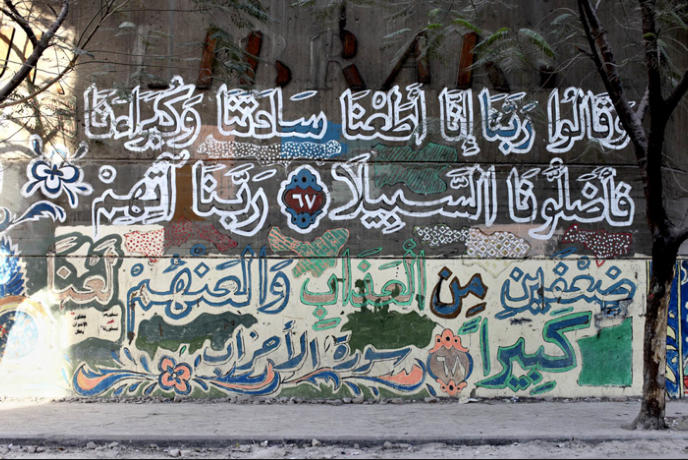 وَقَالُوا رَبَّنَا إِنَّا أَطَعْنَا سَادَتَنَا وَكُبَرَاءَنَا
فَأَضَلُّونَا السَّبِيلَا ٦٧ رَبَّنَا آتِهِمْ
ضِعْفَيْنِ مِنَ الْعَذَابِ وَالْعَنْهُمْ لَعْنًا
كَبِيرًا ٦٨ سورة الأحزاب